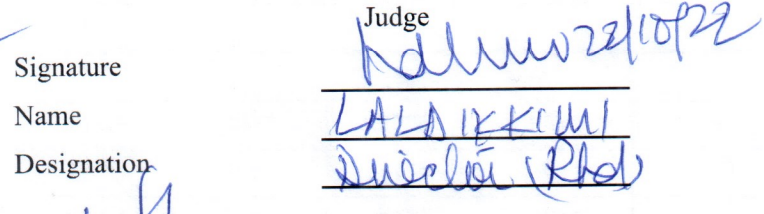 Judge
Signature 22/10/22
Name LALDIKKIMI
Designation Director (Rtd)